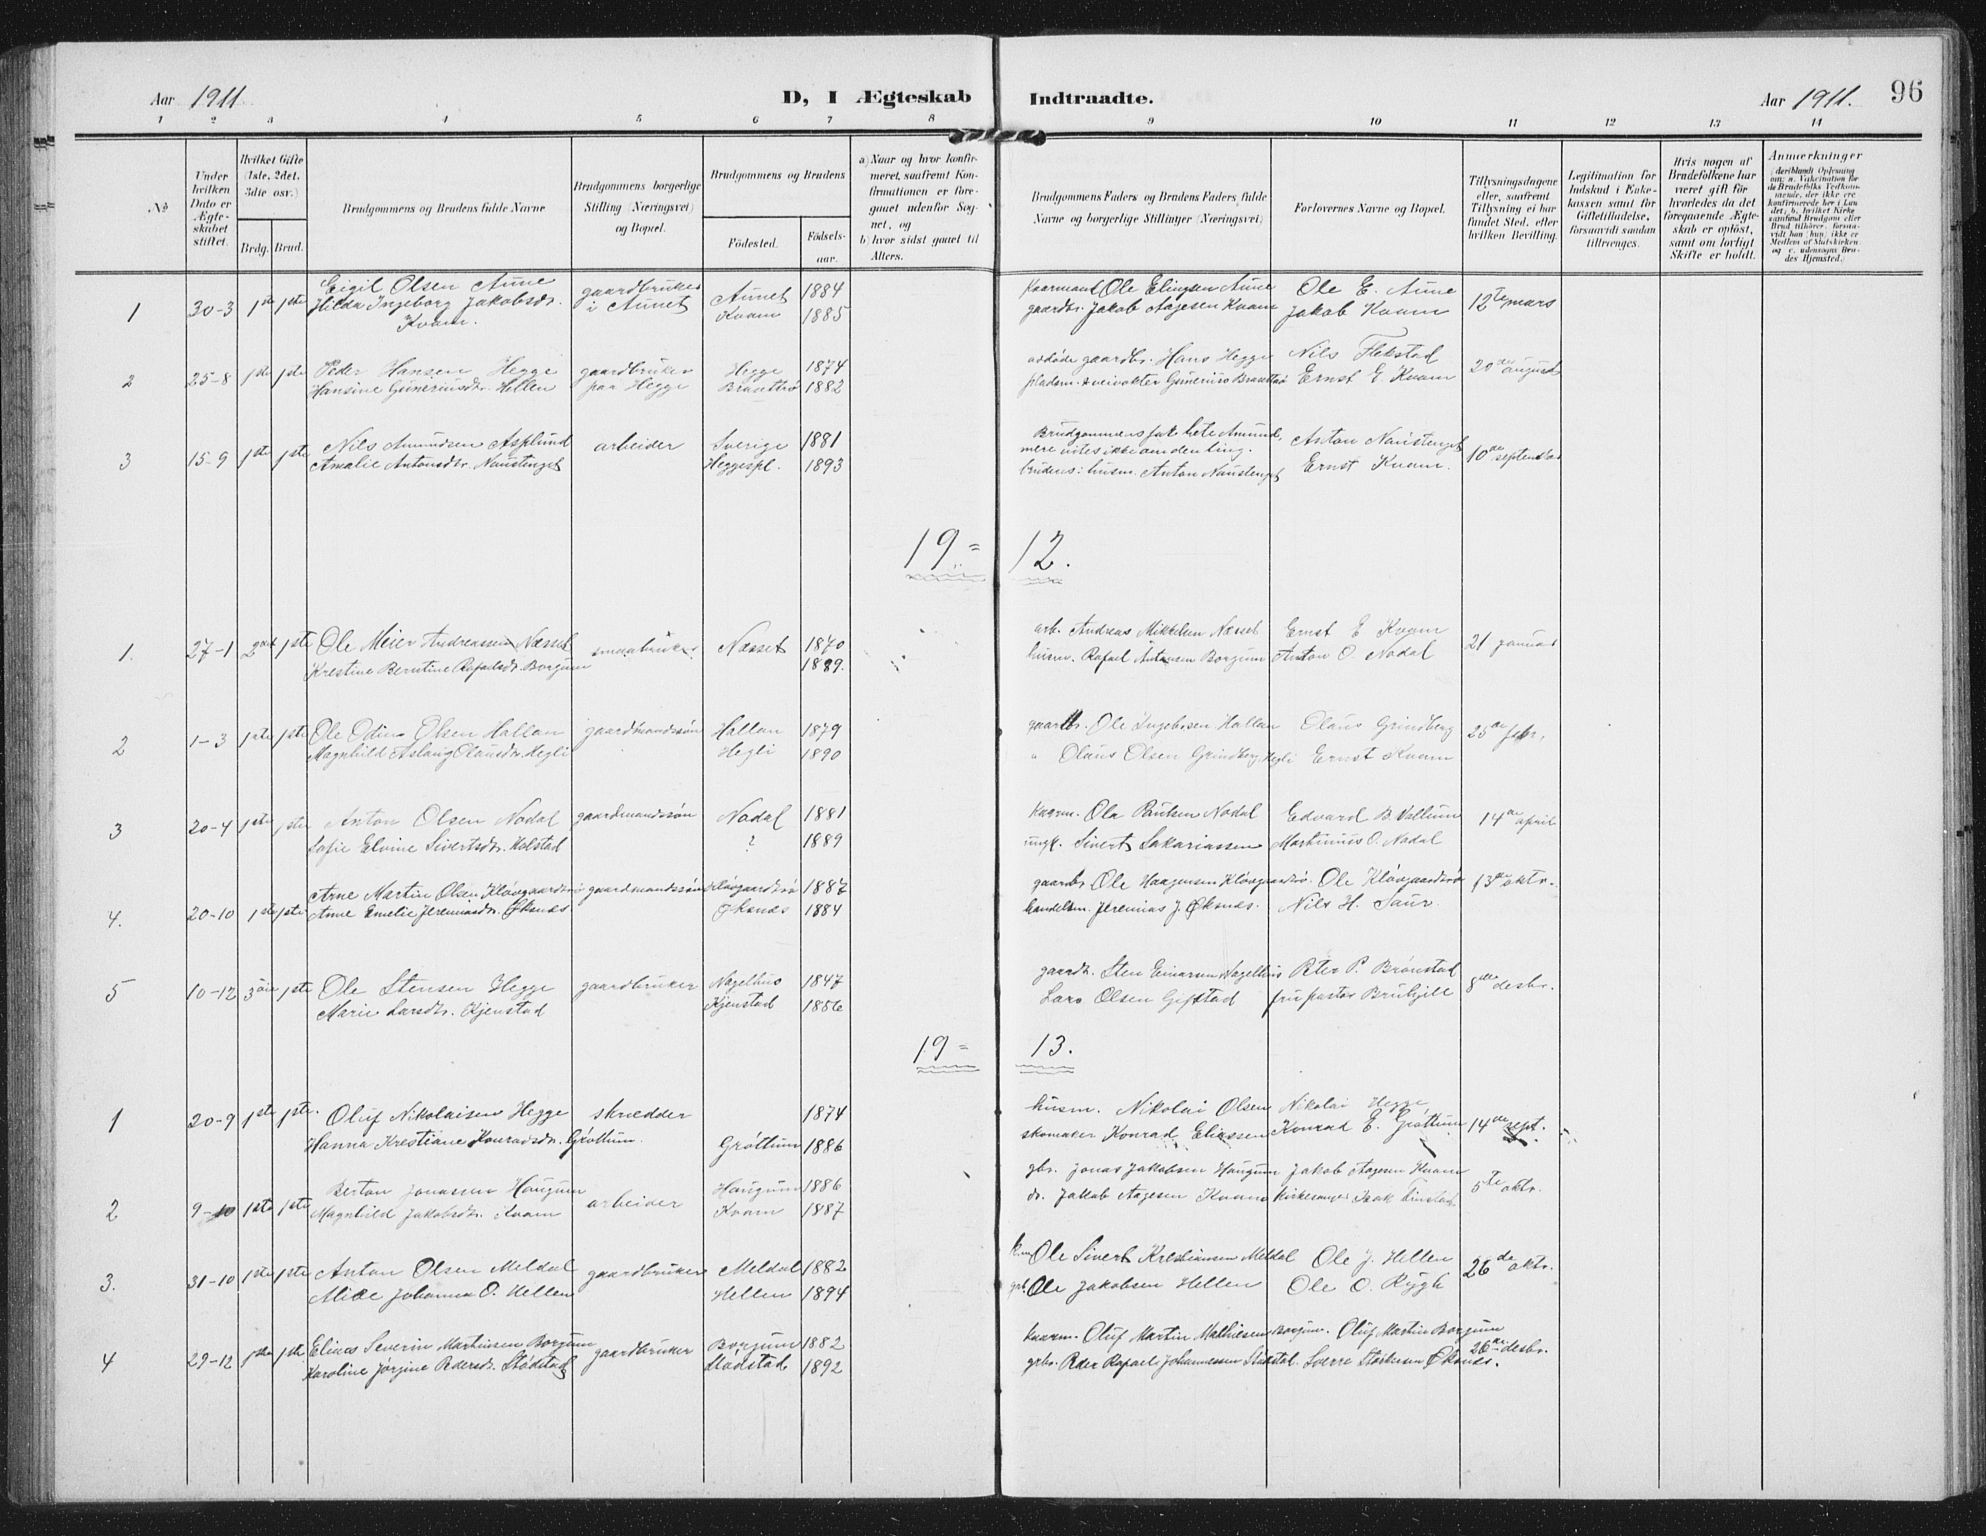 Aar 1911. D, I Ægteskab Indtraadte. Aar 1911. 96
1 2 3 4 5 6 7 8 9 10 11 12 13 14
No
Under hvilken Dato er Ægteskabet stiftet.
Hvilket Gifte (1ste, 2det, 3die osv.)
Brdg. Brud.
Brudgommens og Brudens fulde Navne
Brudgommens borgerlige Stilling (Næringsvei) og Bopæl.
Brudgommens og Brudens
Fødested. Fødselsaar.
a) Naar og hvor konfirmeret, saafremt Konfirmationen er foregaaet udenfor Sognet, og
b) hvor sidst gaaet til Alters.
Brudgommens Faders og Brudens Faders fulde Navne og borgerlige Stillinger (Næringsvei)
Forlovernes Navne og Bopæl.
Tillysningsdagene eller, saafremt Tillysning ei har fundet Sted, efter hvilken Bevilling.
Legitimation for Indskud i Enkekassen samt for Giftetilladelse, forsaavidt saadan tiltrænges.
Hvis nogen af Brudefolkene har været gift før hvorledes da det foregaaende Ægteskab er opløst, samt om lovligt Skifte er holdt.
Anmerkninger
1 30-3 1ste 1ste Eigil Olsen Aune gaardbruker Aunet 1884 Kaarmand Ole Elingsen Aune Ole E. Aune 12te mars
Hilda Ingeborg Jakobsdr. i Aunet Kvam 1885 gaardbr. Jakob Aagesen Kvam Jakob Kvam
Kvam.
2 25-8 1ste 1ste Peder Hansen Hegge gaardbruker Hegge 1874 avdøde gaardbr. Hans Hegge Nils Flekstad 20de august
Hansine Guneriusdr. Hellen paa Hegge 1882 pladsm. & veivokter Gunerius Ernst E. Kvam
3 15-9 1ste 1ste Nils Amundsen Asplund arbeider Sverige 1881 Brudgommens far hete Amund, Anton Naustenget 10de september
Amalie Antonsdr. Naustenget Heggespl. 1893 mere vites ikke om den ting. Ernst Kvam.
brudens: husm. Anton Naustenget
19 = 12.
1. 27-1 2det 1ste Ole Meier Andreassen Næsset smaabruker Næsset 1870 arb. Andreas Mikkelsen Næsset Ernst E Kvam 21 januar
Krestine Berntine Rafaelsdr. Borgum 1889. husm. Rafael Antonsen Borgum Anton O. Nodal
2 1-3 1ste 1ste Ole Odin Olsen Hallan gaardmandssøn Hallan 1879 gaardbr. Ole Ingebr.sen Hallan Olaus Grindberg 25de febr.
Magnhild Aslaug Olausdr. Hegli Hegli 1890 " Olaus Olsen Grindberg, Hegli Ernst Kvam
3 20-4 1ste 1ste Anton Olsen Nodal gaardmandssøn Nodal 1881 Kaarm. Ola Paulsen Nodal Edvard B. Vellum 14de april
Sofie Elvine Sivertsdr. Holstad ? 1889 ungk. Sivert Sakariassen Martinius O. Nodal
4. 20-10 1ste 1ste Arne Martin Olsen Kløvgaardtrø gaardmandssøn Kløvgaardtrø 1887 gaardbr Ole Haagensen Kløvgaardtrø. Ole Kløvgaardtrø 13de oktr.
Anne Emelie Jeremiasdr. Øksnes Øksnes 1884 handelsm. Jeremias J. Øksnes. Nils H. Saur.
5 10-12 3die 1ste Ole Stensen Hegge gaardbruker Nagelhus 1847 gaardbr. Sten Einarsen Nagelhus Peter P. Brønstad 8de desbr.
Marie Larsdr. Kjenstad Kjenstad 1856 Lars Olsen Gifstad fru pastor Bruhjell
19 = 13.
1 20-9 1ste 1ste. Oluf Nikolaisen Hegge skrædder 1874 husm. Nikolai Olsen Nikolai Hegge 14de sept.
Hanna Krestiane Konradsdr. Grøttum. Grøttum 1886 skomaker Konrad Eliassen Konrad E. Grøttum
2 9-10 1ste 1ste Berton Jonassen Haugum arbeider Haugum 1886 gbr. Jonas Jakobsen Haugum Jakob Aagesen Kvam 5te oktr.
Magnhild Jakobsdr. Kvam Kvam 1887 do. Jakob Aagesen Kvam Kirkesanger Isak Finstad
3. 31-10 1ste 1ste Anton Olsen Meldal gaardbruker Meldal 1882 Ole Sivert Krestiansen Meldal Ole J. Hellen 26de oktr.
Alise Johanna O. Hellen Hellen 1894 gbr. Ole Jakobsen Hellen Ole O. Rygh
4 29-12 1ste 1ste Elinas Severin Martinsen Borgum gaardbruker Borgum 1882 Kaarm. Oluf Martin Mathiesen Borgum. Oluf Martin Borgum 26de desbr.
Karoline Jørgine Pedersdr. Stødstad Stødstad 1892 grbr. Peder Rafael Johannessen Stødstad. Sverre Øksnes.